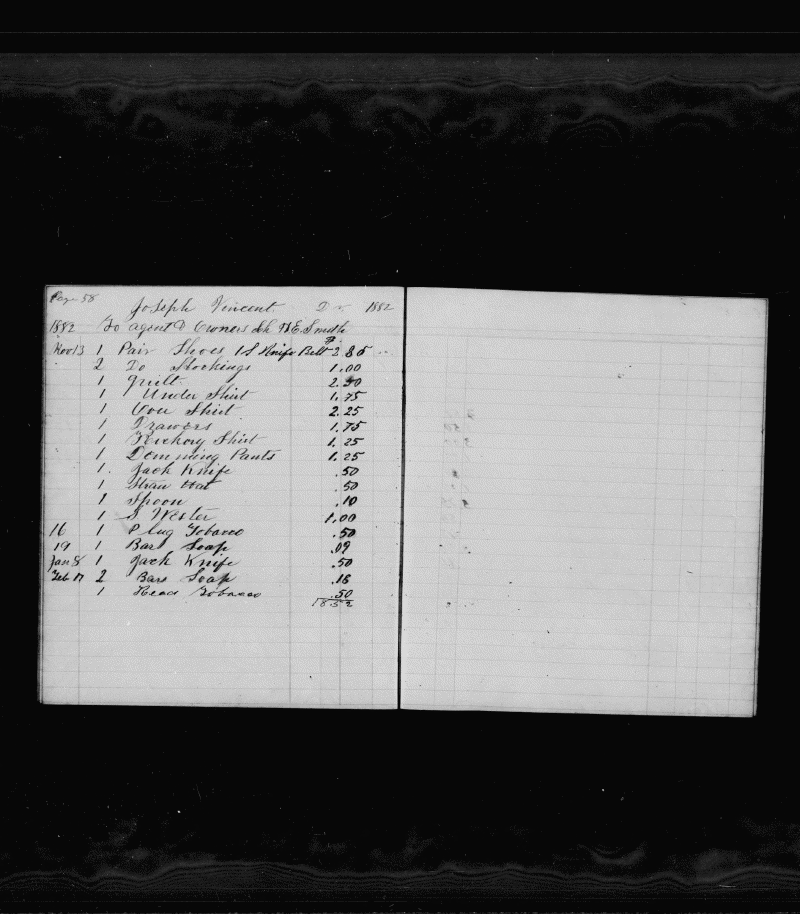 Page 58
Joseph Vincent Dr 1882
1882 To Agent & Owners Sch W.E. Smith
Nov 13 1 Pair Shoes 1 S Knife Belt 2.85
2 Do Stockings 1.00
1 Quilt 2.50
1 Under Shirt 1.75
1 Over Shirt 2.25
1 Drawers 1.75
1 Hickory Shirt 1.25
1 Demming Pants 1.25
1 Jack Knife .50
1 Straw Hat .50
1 Spoon .10
1 S. Wester 1.00
16 1 Plug Tobacco .50
19 1 Bars Soap .09
Jan 8 1 Jack Knife .50
Feb 17 2 Bars Soap .16
1 Head Tobacco .50
18 52